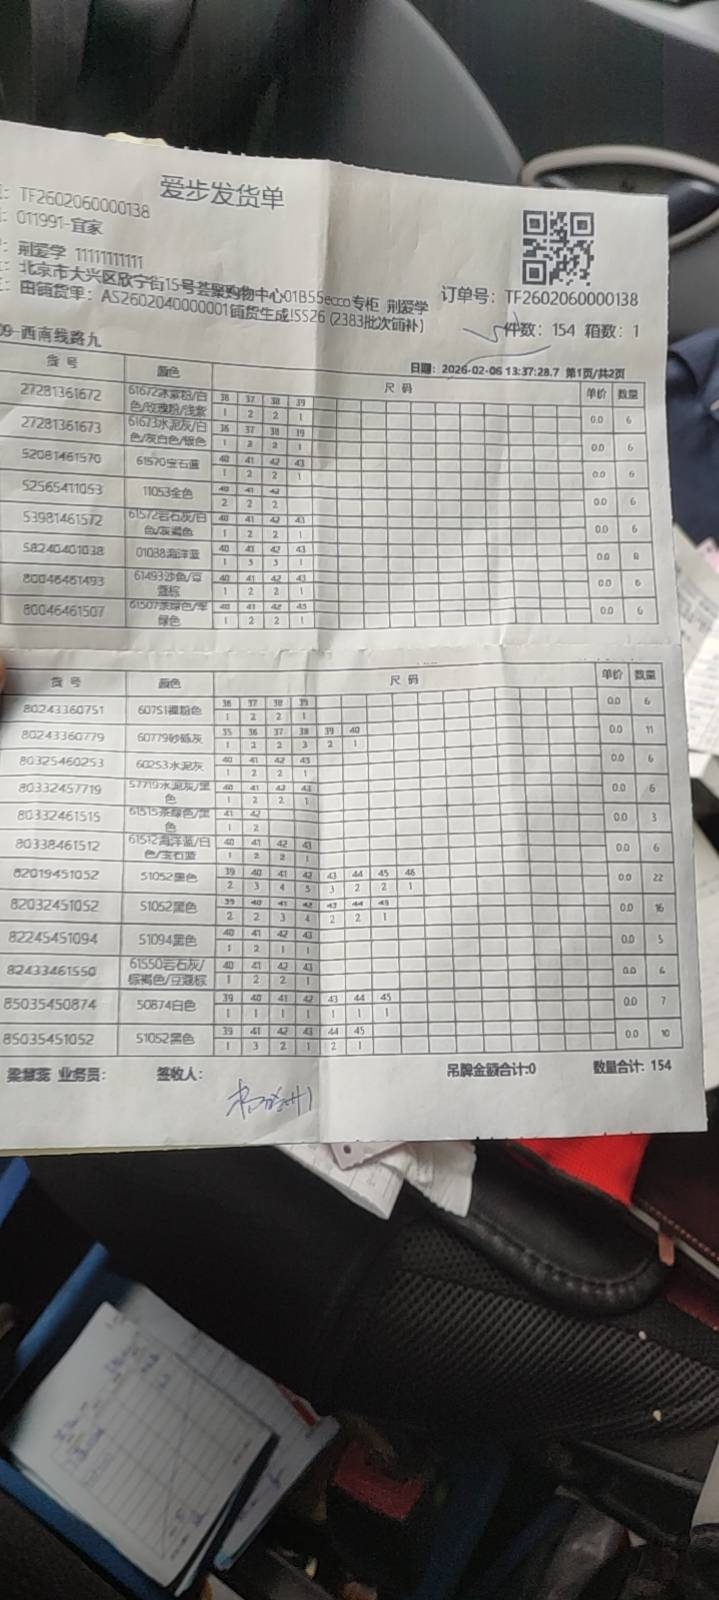 爱步发货单
: TF2602060000138
: 011991-宜家
: 荆爱学 11111111111
: 北京市大兴区欣宁街15号荟聚购物中心01B55ecco专柜 荆爱学
订单号: TF2602060000138
: 由铺货单: AS2602040000001铺货生成!SS26 (2383批次铺补)
件数: 154 箱数: 1
09-西南线路九
日期: 2026-02-06 13:37:28.7 第1页/共2页
货 号 颜色 尺 码 单价 数量
27281361672 61672冰紫粉/白色/玫瑰粉/浅紫 36 37 38 39 0.0 6
1 2 2 1
27281361673 61673水泥灰/白色/灰白色/银色 36 37 38 39 0.0 6
1 2 2 1
52081461570 61570宝石蓝 40 41 42 43 0.0 6
1 2 2 1
52565411053 11053全色 40 41 42 0.0 6
2 2 2
53981461572 61572岩石灰/白色/灰褐色 40 41 42 43 0.0 6
1 2 2 1
58240401038 01038海洋蓝 40 41 42 43 0.0 8
1 3 3 1
80046461493 61493沙色/豆蔻棕 40 41 42 43 0.0 6
1 2 2 1
80046461507 61507茶绿色/军绿色 40 41 42 43 0.0 6
1 2 2 1
货 号 颜色 尺 码 单价 数量
80243360751 60751裸粉色 36 37 38 39 0.0 6
1 2 2 1
80243360779 60779砂砾灰 35 36 37 38 39 40 0.0 11
1 2 2 3 2 1
80325460253 60253水泥灰 40 41 42 43 0.0 6
1 2 2 1
80332457719 57719水泥灰/黑色 40 41 42 43 0.0 6
1 2 2 1
80332461515 61515茶绿色/黑色 41 42 0.0 3
1 2
80338461512 61512海洋蓝/白色/宝石蓝 40 41 42 43 0.0 6
1 2 2 1
82019451052 51052黑色 39 40 41 42 43 44 45 46 0.0 22
2 3 4 5 3 2 2 1
82032451052 51052黑色 39 40 41 42 43 44 45 0.0 16
2 2 3 4 2 2 1
82245451094 51094黑色 40 41 42 43 0.0 5
1 2 1 1
82433461550 61550岩石灰/棕褐色/豆蔻棕 40 41 42 43 0.0 6
1 2 2 1
85035450874 50874白色 39 40 41 42 43 44 45 0.0 7
1 1 1 1 1 1 1
85035451052 51052黑色 39 41 42 43 44 45 0.0 10
1 3 2 1 2 1
梁慧蕊 业务员: 签收人: 吊牌金额合计:0 数量合计: 154